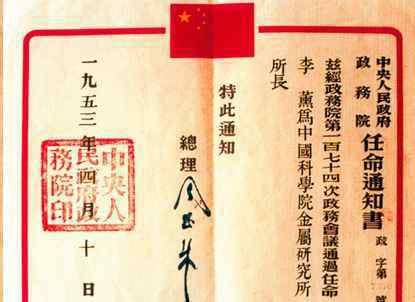 中央人民政府
政務院
任命通知書
政字第 號
茲經政務院第一百七十四次政務會議通過任命
李 薰為中國科學院金屬研究所
所長
特此通知
總理 周恩來
一九五三年四月十日
中央人
民政府政
務院印